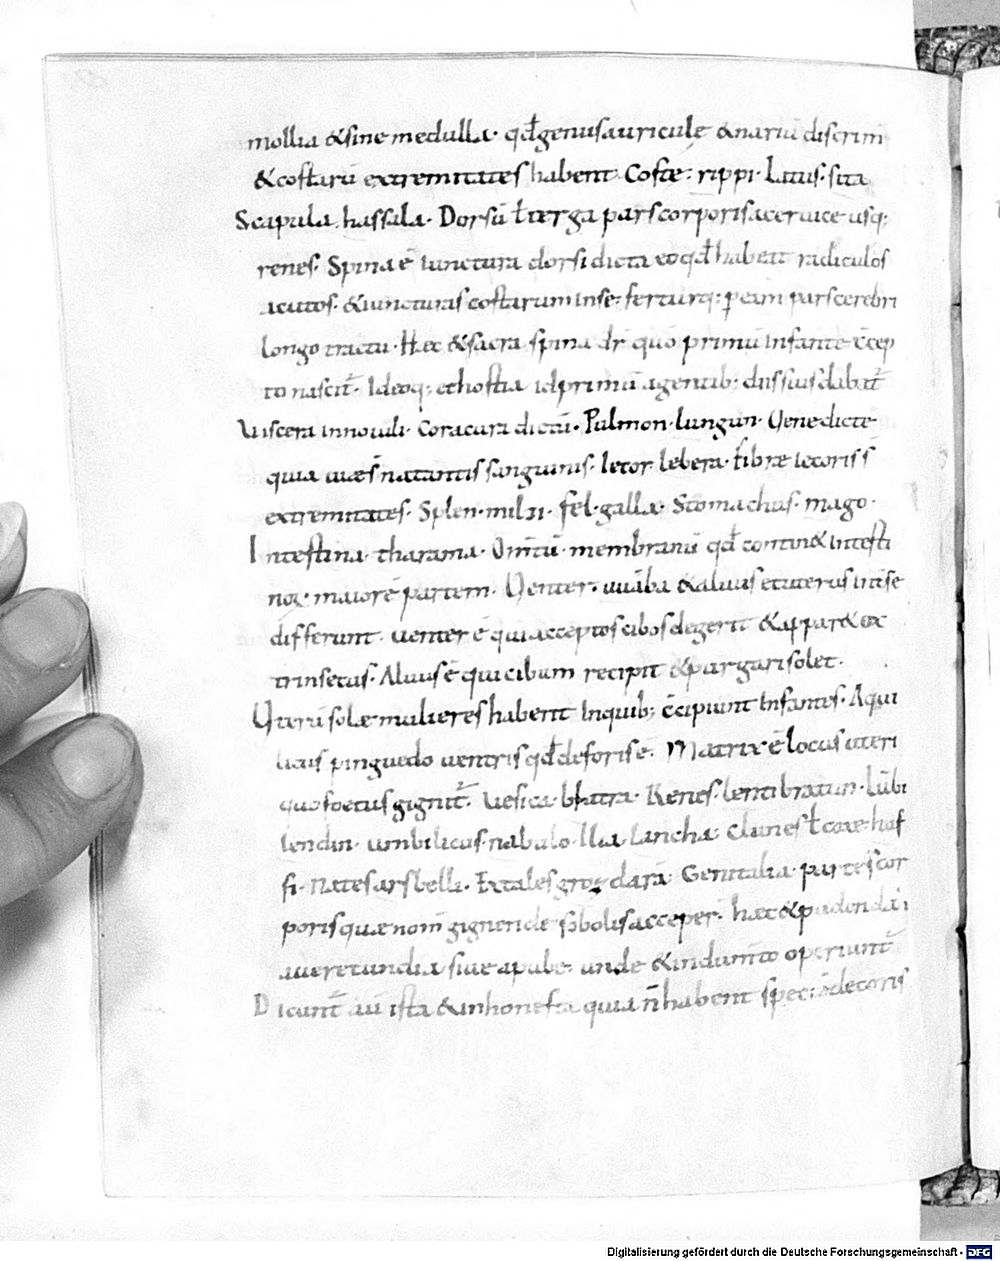 mollia &sine medulla· qđ genus auriculę & nariū discrim
& costarū extremitates habent· Coste· rippi· Latus· sita
Scapula· hassala· Dorsū ł terga pars corporis a ceruice usq;
renes· Spina ē iunctura dorsi dicta eo qđ habeat radiculos
acutos· & iuncturas costarum inse· fertur q; p eam pars cerebri
longo tractu· Hęc & sacra spina dr̄ quo primū infante c̄cep
to nascit̄· Ideoq; et hostia id primū a gentib; diis suis dabat̄
Viscera innouili· Cor a cura dictū· Pulmon· lungun· Uene dicte
quia uiæ s̄ natantis sanguinis· Iecor· lebera· fibræ iecoris s̄
extremitates· Splen· milzi· fel· galla· Stomachus· mago·
Intestina· tharama· Omtū· membranū qđ contin& intesti
norͣ maiorē partem· Uenter· uuāba & aluus et uterus int se
differunt· uenter ē qui acceptos cibos degerit & appar& ex
trinsecus· Aluus ē qui cibum recipit & purgari solet·
Uterū solæ mulieres habent Inquib; c̄cipiunt Infantes· Aqui
licus pinguedo uentris qđ deforis ē· Matrix ē locus uteri
quo foetus gignit̄· Uesica· blatra· Renes· lentibratun· Lūbi
lendin· umbilicus· nabulo· Ilia· lancha· Clunes ł coxe· huf
fi· Nates arsbelli· Extales groz darā· Genitalia· partes cor
poris quæ nom̄ gignende sobolis acceper· hæc & pudenda
a ueretundia siue a pube· unde & indum̄to operiunt̄
Dicunt̄ aū ista & inhonesta quia n̄ habent speciē decoris
Digitalisierung gefördert durch die Deutsche Forschungsgemeinschaft - DFG